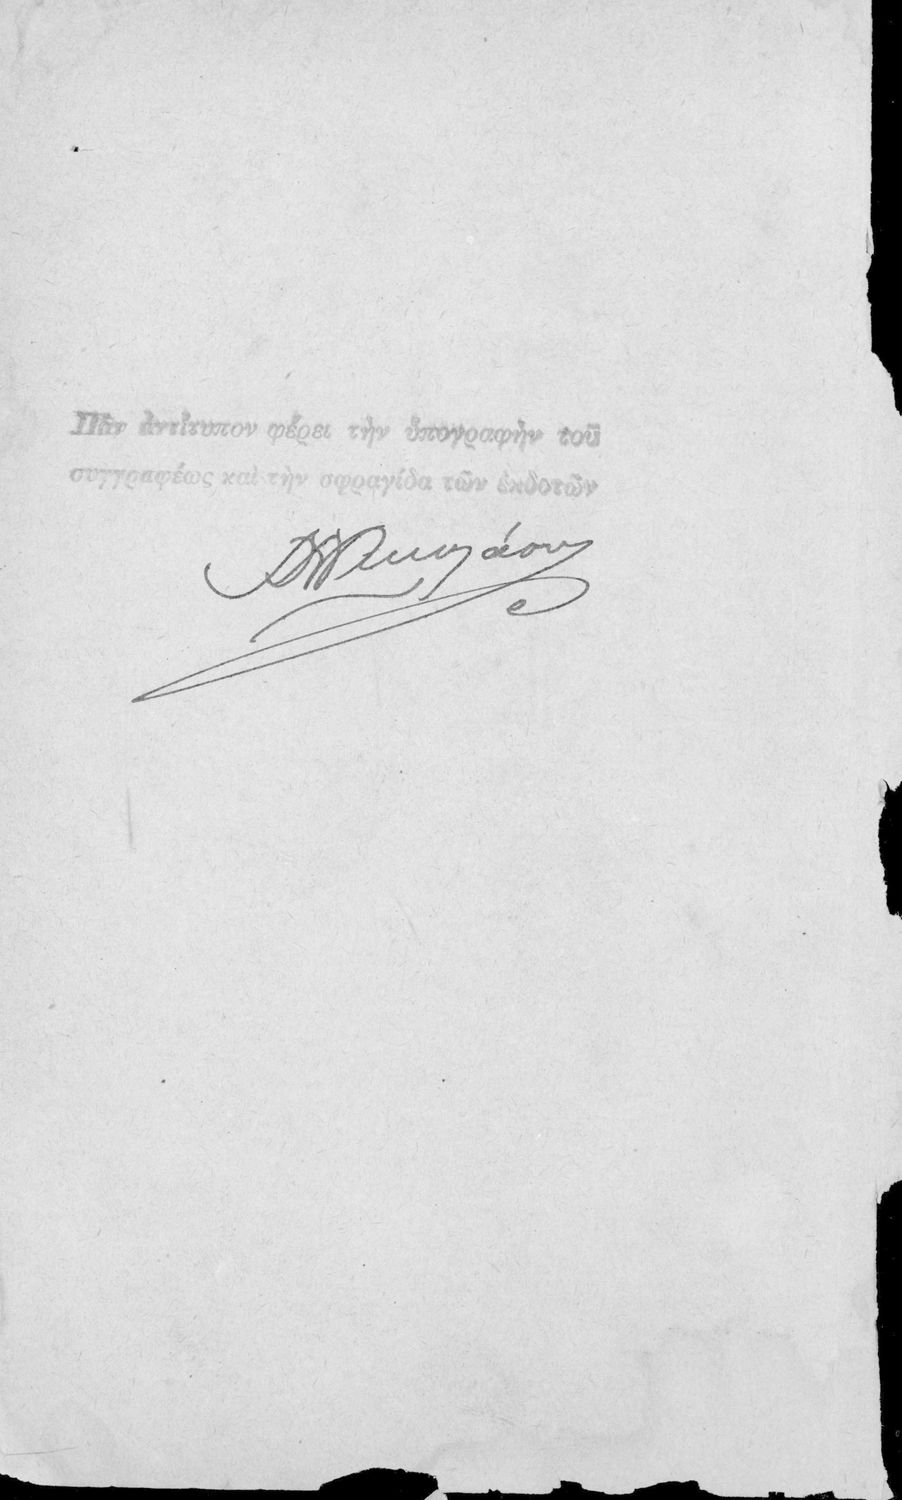 Πᾶν ἀντίτυπον φέρει τὴν ὑπογραφὴν τοῦ
συγγραφέως καὶ τὴν σφραγίδα τῶν ἐκδοτῶν